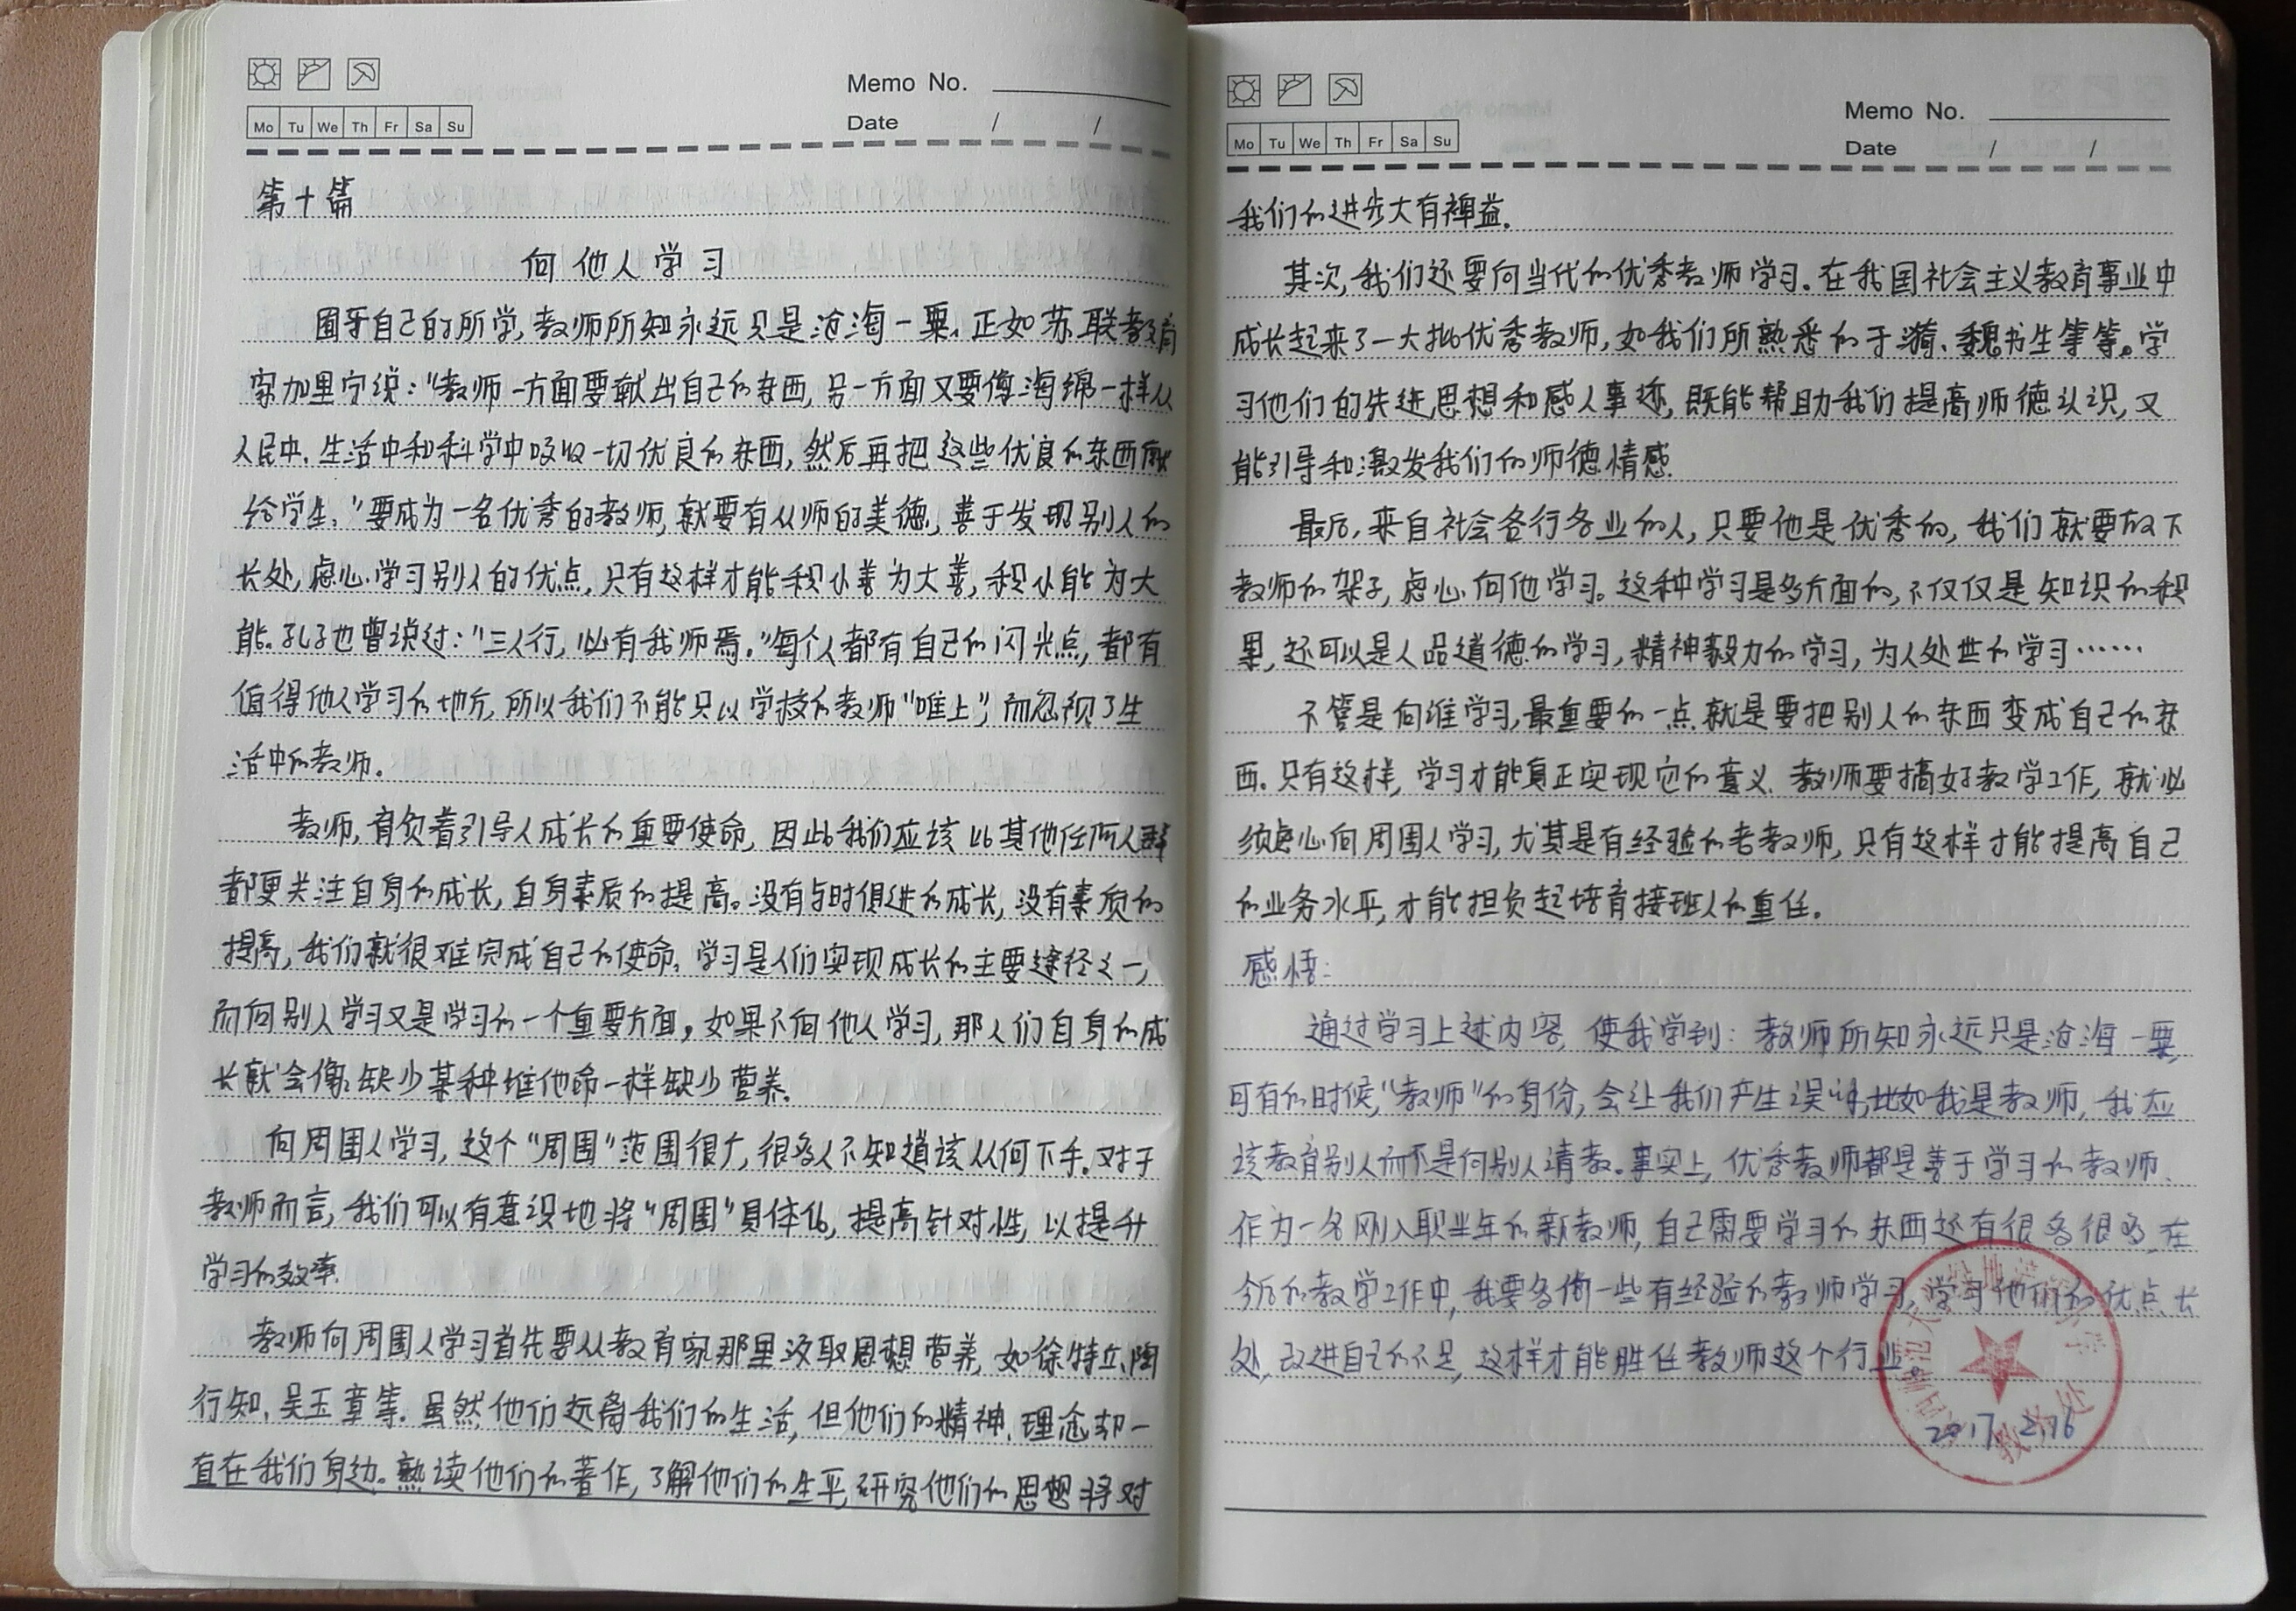 Memo No.
Mo Tu We Th Fr Sa Su
Date / /
第十篇
向他人学习
囿于自己的所学,教师所知永远只是沧海一粟。正如苏联教育
家加里宁说:"教师一方面要献出自己的东西,另一方面又要像海绵一样从
人民中、生活中和科学中吸收一切优良的东西,然后再把这些优良的东西献
给学生。"要成为一名优秀的教师,就要有从师的美德,善于发现别人的
长处,虚心学习别人的优点,只有这样才能积小善为大善,积小能为大
能。孔子也曾说过:"三人行,必有我师焉。"每个人都有自己的闪光点,都有
值得他人学习的地方,所以我们不能只以学校的教师"唯上",而忽视了生
活中的教师。
教师,肩负着引导人成长的重要使命,因此我们应该比其他任何人群
都更关注自身的成长,自身素质的提高。没有与时俱进的成长,没有素质的
提高,我们就很难完成自己的使命。学习是人们实现成长的主要途径之一,
而向别人学习又是学习的一个重要方面,如果不向他人学习,那人们自身的成
长就会像缺少某种维他命一样缺少营养。
向周围人学习,这个"周围"范围很大,很多人不知道该从何下手。对于
教师而言,我们可以有意识地将"周围"具体化,提高针对性,以提升
学习的效率。
教师向周围人学习首先要从教育家那里汲取思想营养,如徐特立、陶
行知、吴玉章等。虽然他们远离我们的生活,但他们的精神、理念却一
直在我们身边。熟读他们的著作,了解他们的生平,研究他们的思想将对
Memo No.
Mo Tu We Th Fr Sa Su
Date / /
我们的进步大有裨益。
其次,我们还要向当代的优秀教师学习。在我国社会主义教育事业中
成长起来了一大批优秀教师,如我们所熟悉的于漪、魏书生等等。学
习他们的先进思想和感人事迹,既能帮助我们提高师德认识,又
能引导和激发我们的师德情感。
最后,来自社会各行各业的人,只要他是优秀的,我们就要放下
教师的架子,虚心向他学习。这种学习是多方面的,不仅仅是知识的积
累,还可以是人品道德的学习,精神毅力的学习,为人处世的学习……
不管是向谁学习,最重要的一点就是要把别人的东西变成自己的东
西。只有这样,学习才能真正实现它的意义。教师要搞好教学工作,就必
须虚心向周围人学习,尤其是有经验的老教师,只有这样才能提高自己
的业务水平,才能担负起培育接班人的重任。
感悟:
通过学习上述内容,使我学到:教师所知永远只是沧海一粟,
可有的时候,"教师"的身份,会让我们产生误解,比如我是教师,我应
该教育别人而不是向别人请教。事实上,优秀教师都是善于学习的教师。
作为一名刚入职半年的新教师,自己需要学习的东西还有很多很多,在
今后的教学工作中,我要多向一些有经验的教师学习,学习他们的优点长
处,改进自己的不足,这样才能胜任教师这个行业。
2017.2.16
教务处